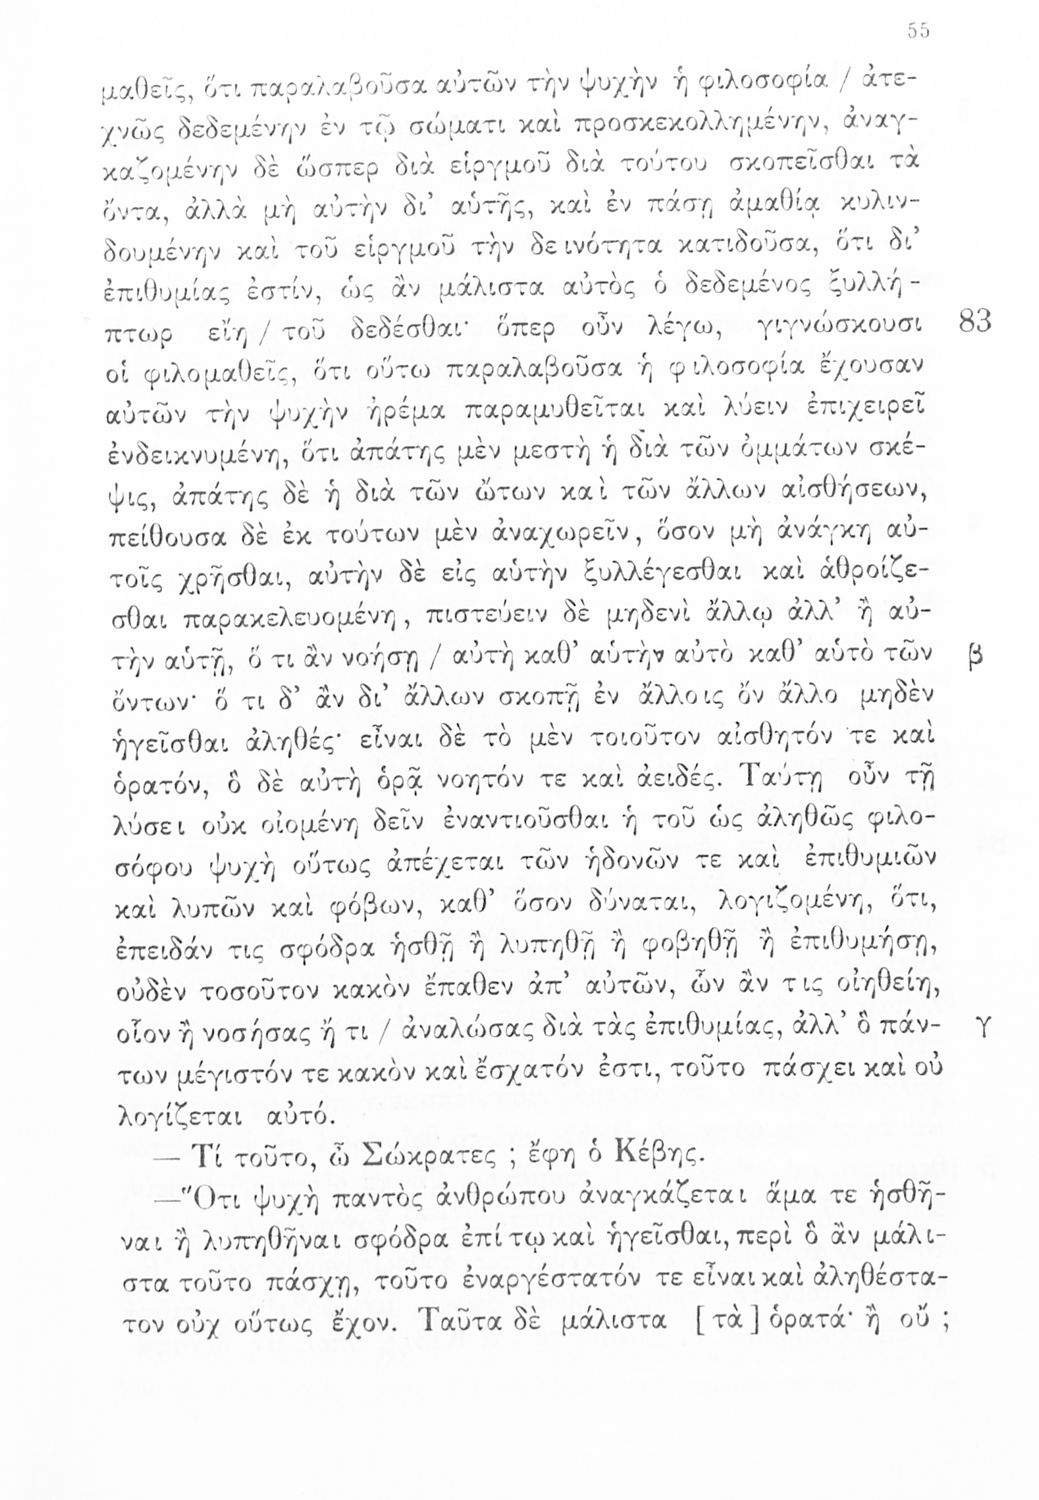 55
μαθεῖς, ὅτι παραλαβοῦσα αὐτῶν τὴν ψυχὴν ἡ φιλοσοφία / ἀτε-
χνῶς δεδεμένην ἐν τῷ σώματι καὶ προσκεκολλημένην, ἀναγ-
καζομένην δὲ ὥσπερ διὰ εἱργμοῦ διὰ τούτου σκοπεῖσθαι τὰ
ὄντα, ἀλλὰ μὴ αὐτὴν δι' αὑτῆς, καὶ ἐν πάσῃ ἀμαθίᾳ κυλιν-
δουμένην καὶ τοῦ εἱργμοῦ τὴν δεινότητα κατιδοῦσα, ὅτι δι'
ἐπιθυμίας ἐστίν, ὡς ἂν μάλιστα αὐτὸς ὁ δεδεμένος ξυλλή-
πτωρ εἴη / τοῦ δεδέσθαι· ὅπερ οὖν λέγω, γιγνώσκουσι 83
οἱ φιλομαθεῖς, ὅτι οὕτω παραλαβοῦσα ἡ φιλοσοφία ἔχουσαν
αὐτῶν τὴν ψυχὴν ἠρέμα παραμυθεῖται καὶ λύειν ἐπιχειρεῖ
ἐνδεικνυμένη, ὅτι ἀπάτης μὲν μεστὴ ἡ διὰ τῶν ὀμμάτων σκέ-
ψις, ἀπάτης δὲ ἡ διὰ τῶν ὤτων καὶ τῶν ἄλλων αἰσθήσεων,
πείθουσα δὲ ἐκ τούτων μὲν ἀναχωρεῖν, ὅσον μὴ ἀνάγκη αὐ-
τοῖς χρῆσθαι, αὐτὴν δὲ εἰς αὑτὴν ξυλλέγεσθαι καὶ ἀθροίζε-
σθαι παρακελευομένη, πιστεύειν δὲ μηδενὶ ἄλλῳ ἀλλ' ἢ αὐ-
τὴν αὑτῇ, ὅ τι ἂν νοήσῃ / αὐτὴ καθ' αὑτὴν αὐτὸ καθ' αὑτὸ τῶν β
ὄντων· ὅ τι δ' ἂν δι' ἄλλων σκοπῇ ἐν ἄλλοις ὂν ἄλλο μηδὲν
ἡγεῖσθαι ἀληθές· εἶναι δὲ τὸ μὲν τοιοῦτον αἰσθητόν τε καὶ
ὁρατόν, ὃ δὲ αὐτὴ ὁρᾷ νοητόν τε καὶ ἀειδές. Ταύτῃ οὖν τῇ
λύσει οὐκ οἰομένη δεῖν ἐναντιοῦσθαι ἡ τοῦ ὡς ἀληθῶς φιλο-
σόφου ψυχὴ οὕτως ἀπέχεται τῶν ἡδονῶν τε καὶ ἐπιθυμιῶν
καὶ λυπῶν καὶ φόβων, καθ' ὅσον δύναται, λογιζομένη, ὅτι,
ἐπειδάν τις σφόδρα ἡσθῇ ἢ λυπηθῇ ἢ φοβηθῇ ἢ ἐπιθυμήσῃ,
οὐδὲν τοσοῦτον κακὸν ἔπαθεν ἀπ' αὐτῶν, ὧν ἄν τις οἰηθείη,
οἷον ἢ νοσήσας ἤ τι / ἀναλώσας διὰ τὰς ἐπιθυμίας, ἀλλ' ὃ πάν- γ
των μέγιστόν τε κακὸν καὶ ἔσχατόν ἐστι, τοῦτο πάσχει καὶ οὐ
λογίζεται αὐτό.
— Τί τοῦτο, ὦ Σώκρατες ; ἔφη ὁ Κέβης.
—Ὅτι ψυχὴ παντὸς ἀνθρώπου ἀναγκάζεται ἅμα τε ἡσθῆ-
ναι ἢ λυπηθῆναι σφόδρα ἐπί τῳ καὶ ἡγεῖσθαι, περὶ ὃ ἂν μάλι-
στα τοῦτο πάσχῃ, τοῦτο ἐναργέστατόν τε εἶναι καὶ ἀληθέστα-
τον οὐχ οὕτως ἔχον. Ταῦτα δὲ μάλιστα [τὰ] ὁρατά· ἢ οὔ ;